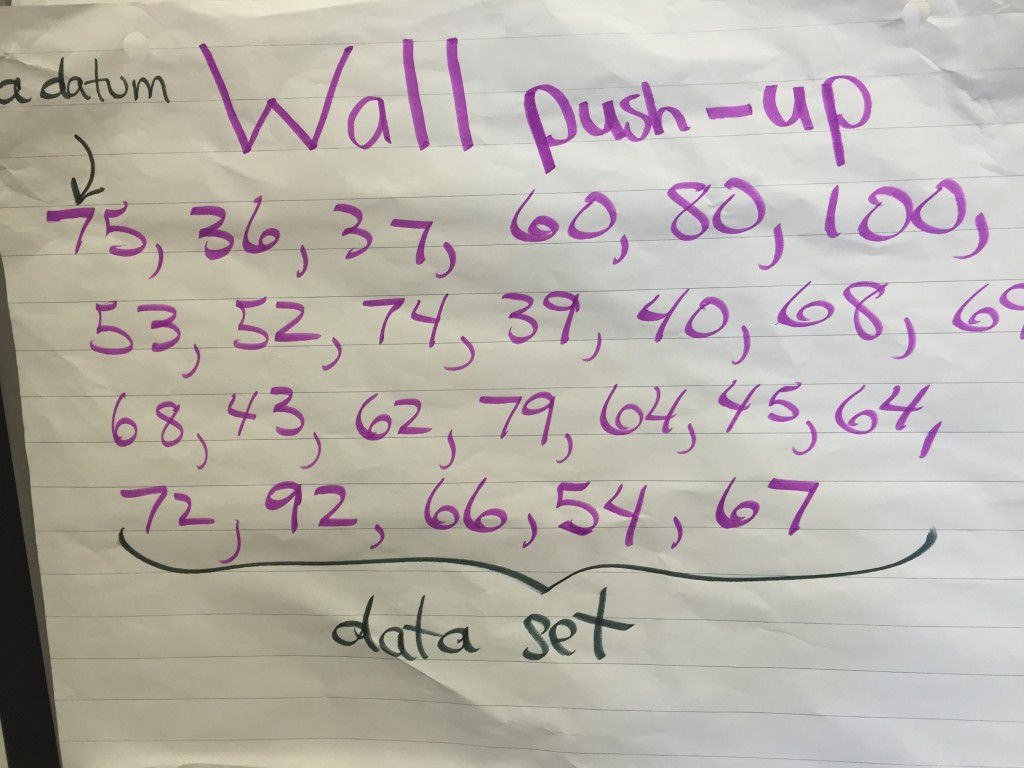 a datum
Wall push-up
75, 36, 37, 60, 80, 100,
53, 52, 74, 39, 40, 68,
68, 43, 62, 79, 64, 45, 64,
72, 92, 66, 54, 67
data set